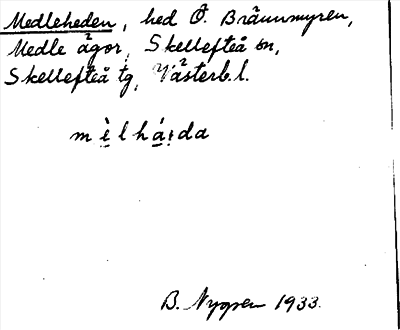 Medleheden, hed Ö. Brännmyren,
Medle ägor, Skellefteå sn,
Skellefteå tg, Västerb. l.
mèlháịda
B. Nygren 1933.